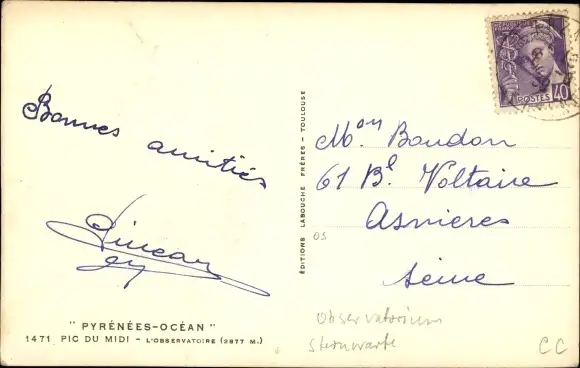 Bonnes amitiés
"PYRÉNÉES-OCÉAN"
1471 PIC DU MIDI - L'OBSERVATOIRE (2877 M.)
ÉDITIONS LABOUCHE FRÈRES - TOULOUSE
POSTES 40
Mon Boudon
61 Bd Voltaire
Asnieres
Seine
03
Observatorium
Sternwarte
CC